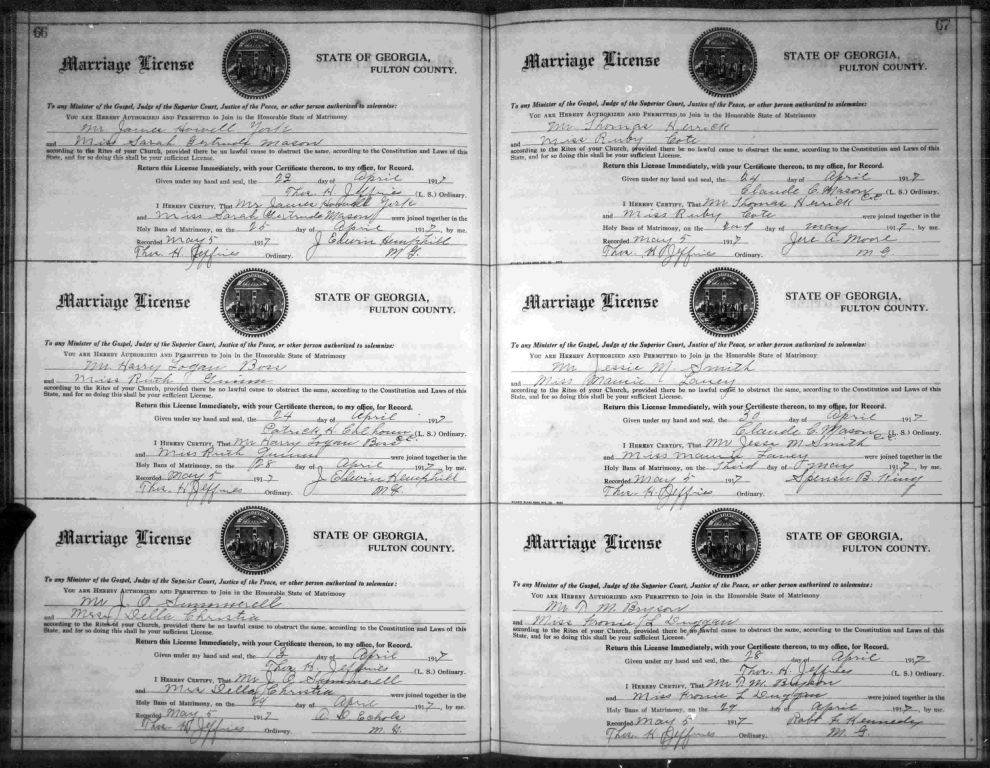 66
Marriage License
STATE OF GEORGIA,
FULTON COUNTY.
To any Minister of the Gospel, Judge of the Superior Court, Justice of the Peace, or other person authorized to solemnize:
YOU ARE HEREBY AUTHORIZED AND PERMITTED to Join in the Honorable State of Matrimony
Mr James Howell York
and Miss Sarah Gertrude Mason
according to the Rites of your Church, provided there be no lawful cause to obstruct the same, according to the Constitution and Laws of this
State, and for so doing this shall be your sufficient License.
Return this License Immediately, with your Certificate thereon, to my office, for Record.
Given under my hand and seal, the 23 day of April 1917
Thos. H. Jeffries (L. S.) Ordinary.
I HEREBY CERTIFY, That Mr James Howell York
and Miss Sarah Gertrude Mason were joined together in the
Holy Bans of Matrimony, on the 25 day of April 1917, by me.
Recorded May 5 1917 J Edwin Hemphill
Thos. H. Jeffries Ordinary. M. G.
Marriage License
STATE OF GEORGIA,
FULTON COUNTY.
To any Minister of the Gospel, Judge of the Superior Court, Justice of the Peace, or other person authorized to solemnize:
YOU ARE HEREBY AUTHORIZED AND PERMITTED to Join in the Honorable State of Matrimony
Mr Harry Logan Boss
and Miss Ruth
according to the Rites of your Church, provided there be no lawful cause to obstruct the same, according to the Constitution and Laws of this
State, and for so doing this shall be your sufficient License.
Return this License Immediately, with your Certificate thereon, to my office, for Record.
Given under my hand and seal, the 24 day of April 1917
Patrick H Calhoun C.C. (L. S.) Ordinary.
I HEREBY CERTIFY, That Mr Harry Logan Boss
and Miss Ruth were joined together in the
Holy Bans of Matrimony, on the 28 day of April 1917, by me.
Recorded May 5 1917 J Edwin Hemphill
Thos. H. Jeffries Ordinary. M. G.
Marriage License
STATE OF GEORGIA,
FULTON COUNTY.
To any Minister of the Gospel, Judge of the Superior Court, Justice of the Peace, or other person authorized to solemnize:
YOU ARE HEREBY AUTHORIZED AND PERMITTED to Join in the Honorable State of Matrimony
Mr J. O. Summerell
and Mrs Della Christia
according to the Rites of your Church, provided there be no lawful cause to obstruct the same, according to the Constitution and Laws of this
State, and for so doing this shall be your sufficient License.
Return this License Immediately, with your Certificate thereon, to my office, for Record.
Given under my hand and seal, the day of April 1917
Thos. H. Jeffries (L. S.) Ordinary.
I HEREBY CERTIFY, That Mr J. O. Summerell
and Mrs Della Christia were joined together in the
Holy Bans of Matrimony, on the 29 day of April 1917, by me.
Recorded May 5 1917 A. D. Echols
Thos. H. Jeffries Ordinary. M. G.
67
Marriage License
STATE OF GEORGIA,
FULTON COUNTY.
To any Minister of the Gospel, Judge of the Superior Court, Justice of the Peace, or other person authorized to solemnize:
YOU ARE HEREBY AUTHORIZED AND PERMITTED to Join in the Honorable State of Matrimony
Mr Thomas Herrick
and Miss Ruby Cote
according to the Rites of your Church, provided there be no lawful cause to obstruct the same, according to the Constitution and Laws of this
State, and for so doing this shall be your sufficient License.
Return this License Immediately, with your Certificate thereon, to my office, for Record.
Given under my hand and seal, the 24 day of April 1917
Claude C. Mason C.C. (L. S.) Ordinary.
I HEREBY CERTIFY, That Mr Thomas Herrick
and Miss Ruby Cote were joined together in the
Holy Bans of Matrimony, on the 2nd day of May 1917, by me.
Recorded May 5 1917 Jere A. Moore
Thos. H. Jeffries Ordinary. M G.
Marriage License
STATE OF GEORGIA,
FULTON COUNTY.
To any Minister of the Gospel, Judge of the Superior Court, Justice of the Peace, or other person authorized to solemnize:
YOU ARE HEREBY AUTHORIZED AND PERMITTED to Join in the Honorable State of Matrimony
Mr Jessie M Smith
and Miss Mamie Laney
according to the Rites of your Church, provided there be no lawful cause to obstruct the same, according to the Constitution and Laws of this
State, and for so doing this shall be your sufficient License.
Return this License Immediately, with your Certificate thereon, to my office, for Record.
Given under my hand and seal, the 30 day of April 1917
Claude C. Mason C.C. (L. S.) Ordinary.
I HEREBY CERTIFY, That Mr Jesse M Smith
and Miss Mamie Laney were joined together in the
Holy Bans of Matrimony, on the Third day of May 1917, by me.
Recorded May 5 1917 Spencer B. King
Thos. H. Jeffries Ordinary.
Marriage License
STATE OF GEORGIA,
FULTON COUNTY.
To any Minister of the Gospel, Judge of the Superior Court, Justice of the Peace, or other person authorized to solemnize:
YOU ARE HEREBY AUTHORIZED AND PERMITTED to Join in the Honorable State of Matrimony
Mr T. M. Bryson
and Miss Fronie L Duggan
according to the Rites of your Church, provided there be no lawful cause to obstruct the same, according to the Constitution and Laws of this
State, and for so doing this shall be your sufficient License.
Return this License Immediately, with your Certificate thereon, to my office, for Record.
Given under my hand and seal, the 28 day of April 1917
Thos. H. Jeffries (L. S.) Ordinary.
I HEREBY CERTIFY, That Mr T. M. Bryson
and Miss Fronie L Duggan were joined together in the
Holy Bans of Matrimony, on the 29 day of April 1917, by me.
Recorded May 5 1917 Robt F. Kennedy
Thos. H. Jeffries Ordinary. M. G.